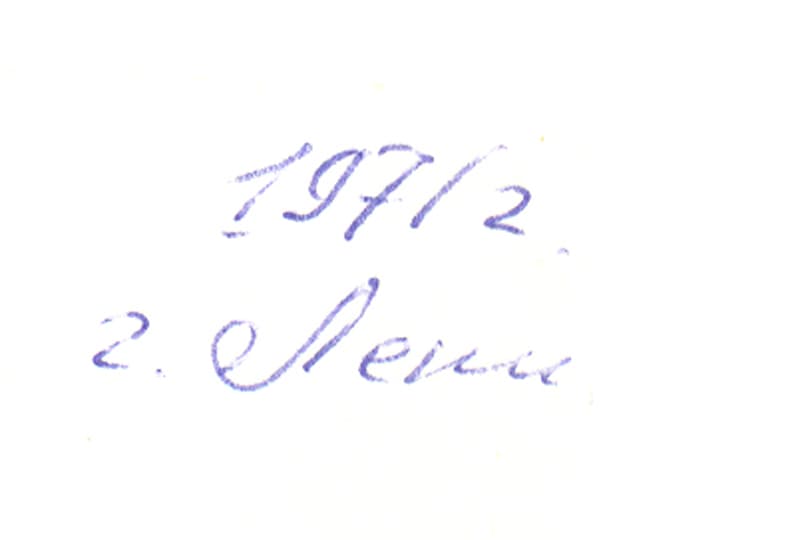 1971 г.
г. Лени